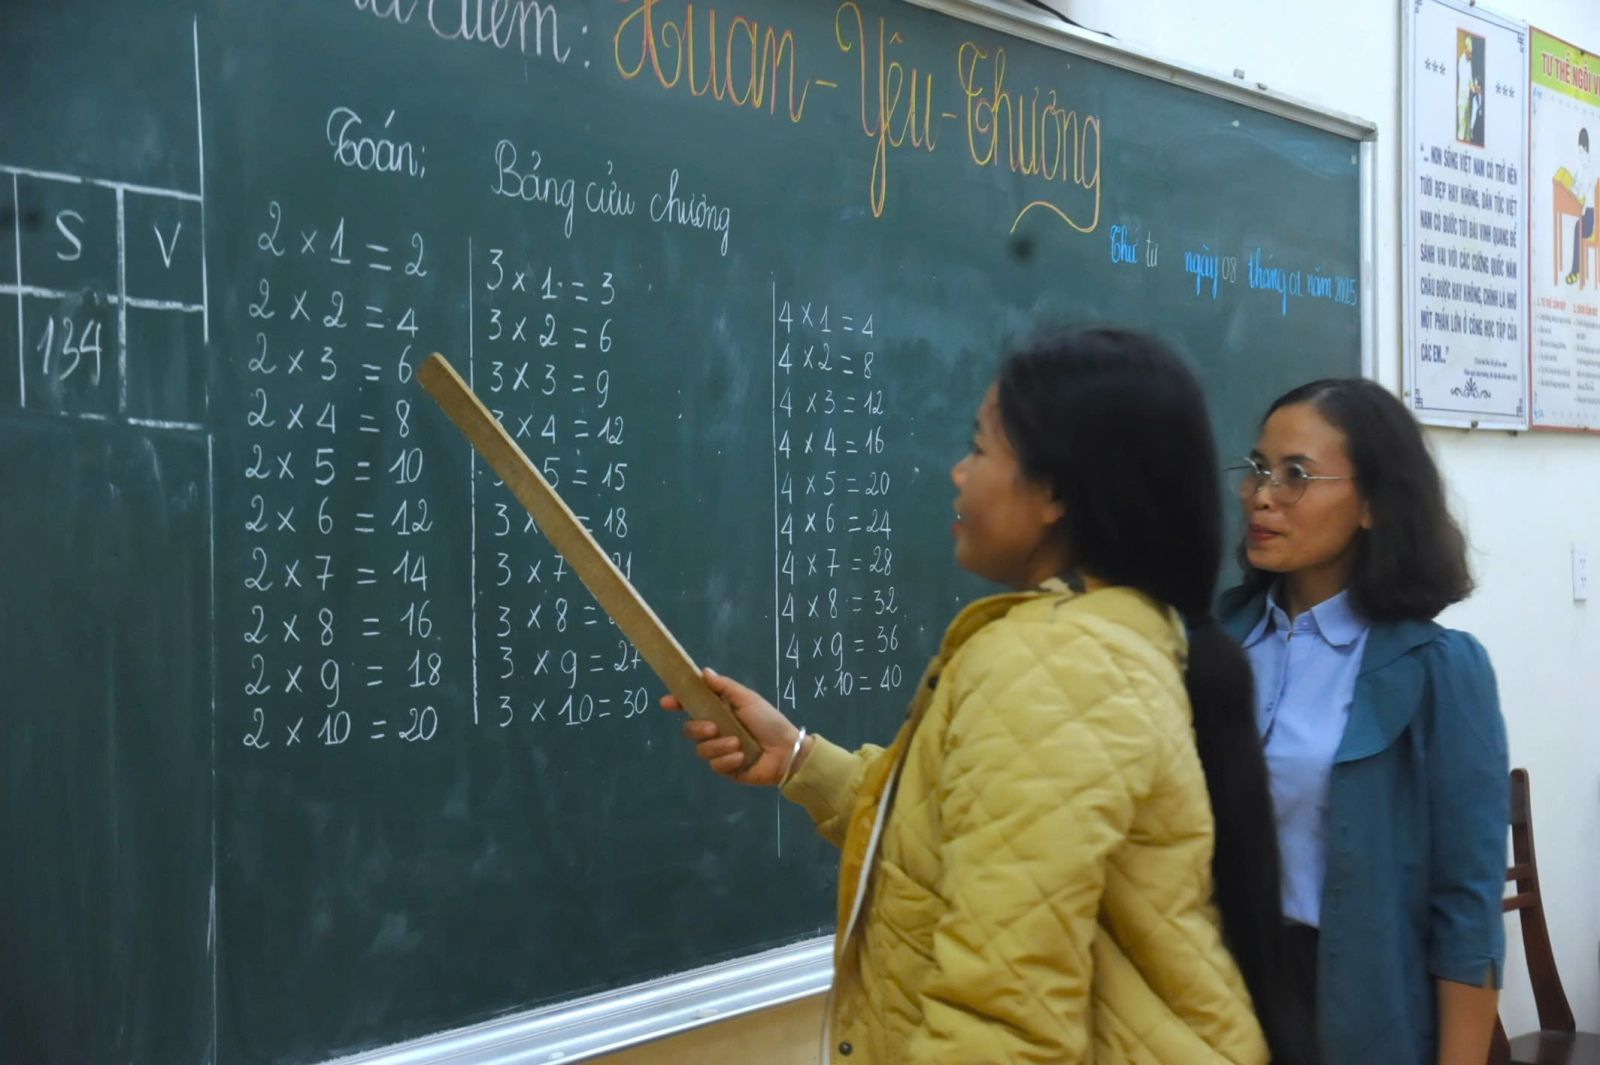 điểm: Xuân - Yêu - Thương
Toán: Bảng cửu chương
Thứ tư ngày 08 tháng 01 năm 2025
S V
134
2 x 1 = 2
2 x 2 = 4
2 x 3 = 6
2 x 4 = 8
2 x 5 = 10
2 x 6 = 12
2 x 7 = 14
2 x 8 = 16
2 x 9 = 18
2 x 10 = 20
3 x 1 = 3
3 x 2 = 6
3 x 3 = 9
3 x 4 = 12
5 = 15
3 x = 18
3 x 7 21
3 x 8 =
3 x 9 = 27
3 x 10 = 30
4 x 1 = 4
4 x 2 = 8
4 x 3 = 12
4 x 4 = 16
4 x 5 = 20
4 x 6 = 24
4 x 7 = 28
4 x 8 = 32
4 x 9 = 36
4 x 10 = 40
"... NON SÔNG VIỆT NAM CÓ TRỞ NÊN
TƯƠI ĐẸP HAY KHÔNG, DÂN TỘC VIỆT
NAM CÓ BƯỚC TỚI ĐÀI VINH QUANG ĐỂ
SÁNH VAI VỚI CÁC CƯỜNG QUỐC NĂM
CHÂU ĐƯỢC HAY KHÔNG, CHÍNH LÀ NHỜ
MỘT PHẦN LỚN Ở CÔNG HỌC TẬP CỦA
CÁC EM..."
TƯ THẾ NGỒI